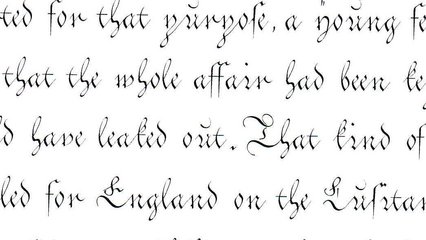 ted for that purpoſe, a young fe
that the whole affair had been ke
d have leaked out. That kind of
led for England on the Luſitan